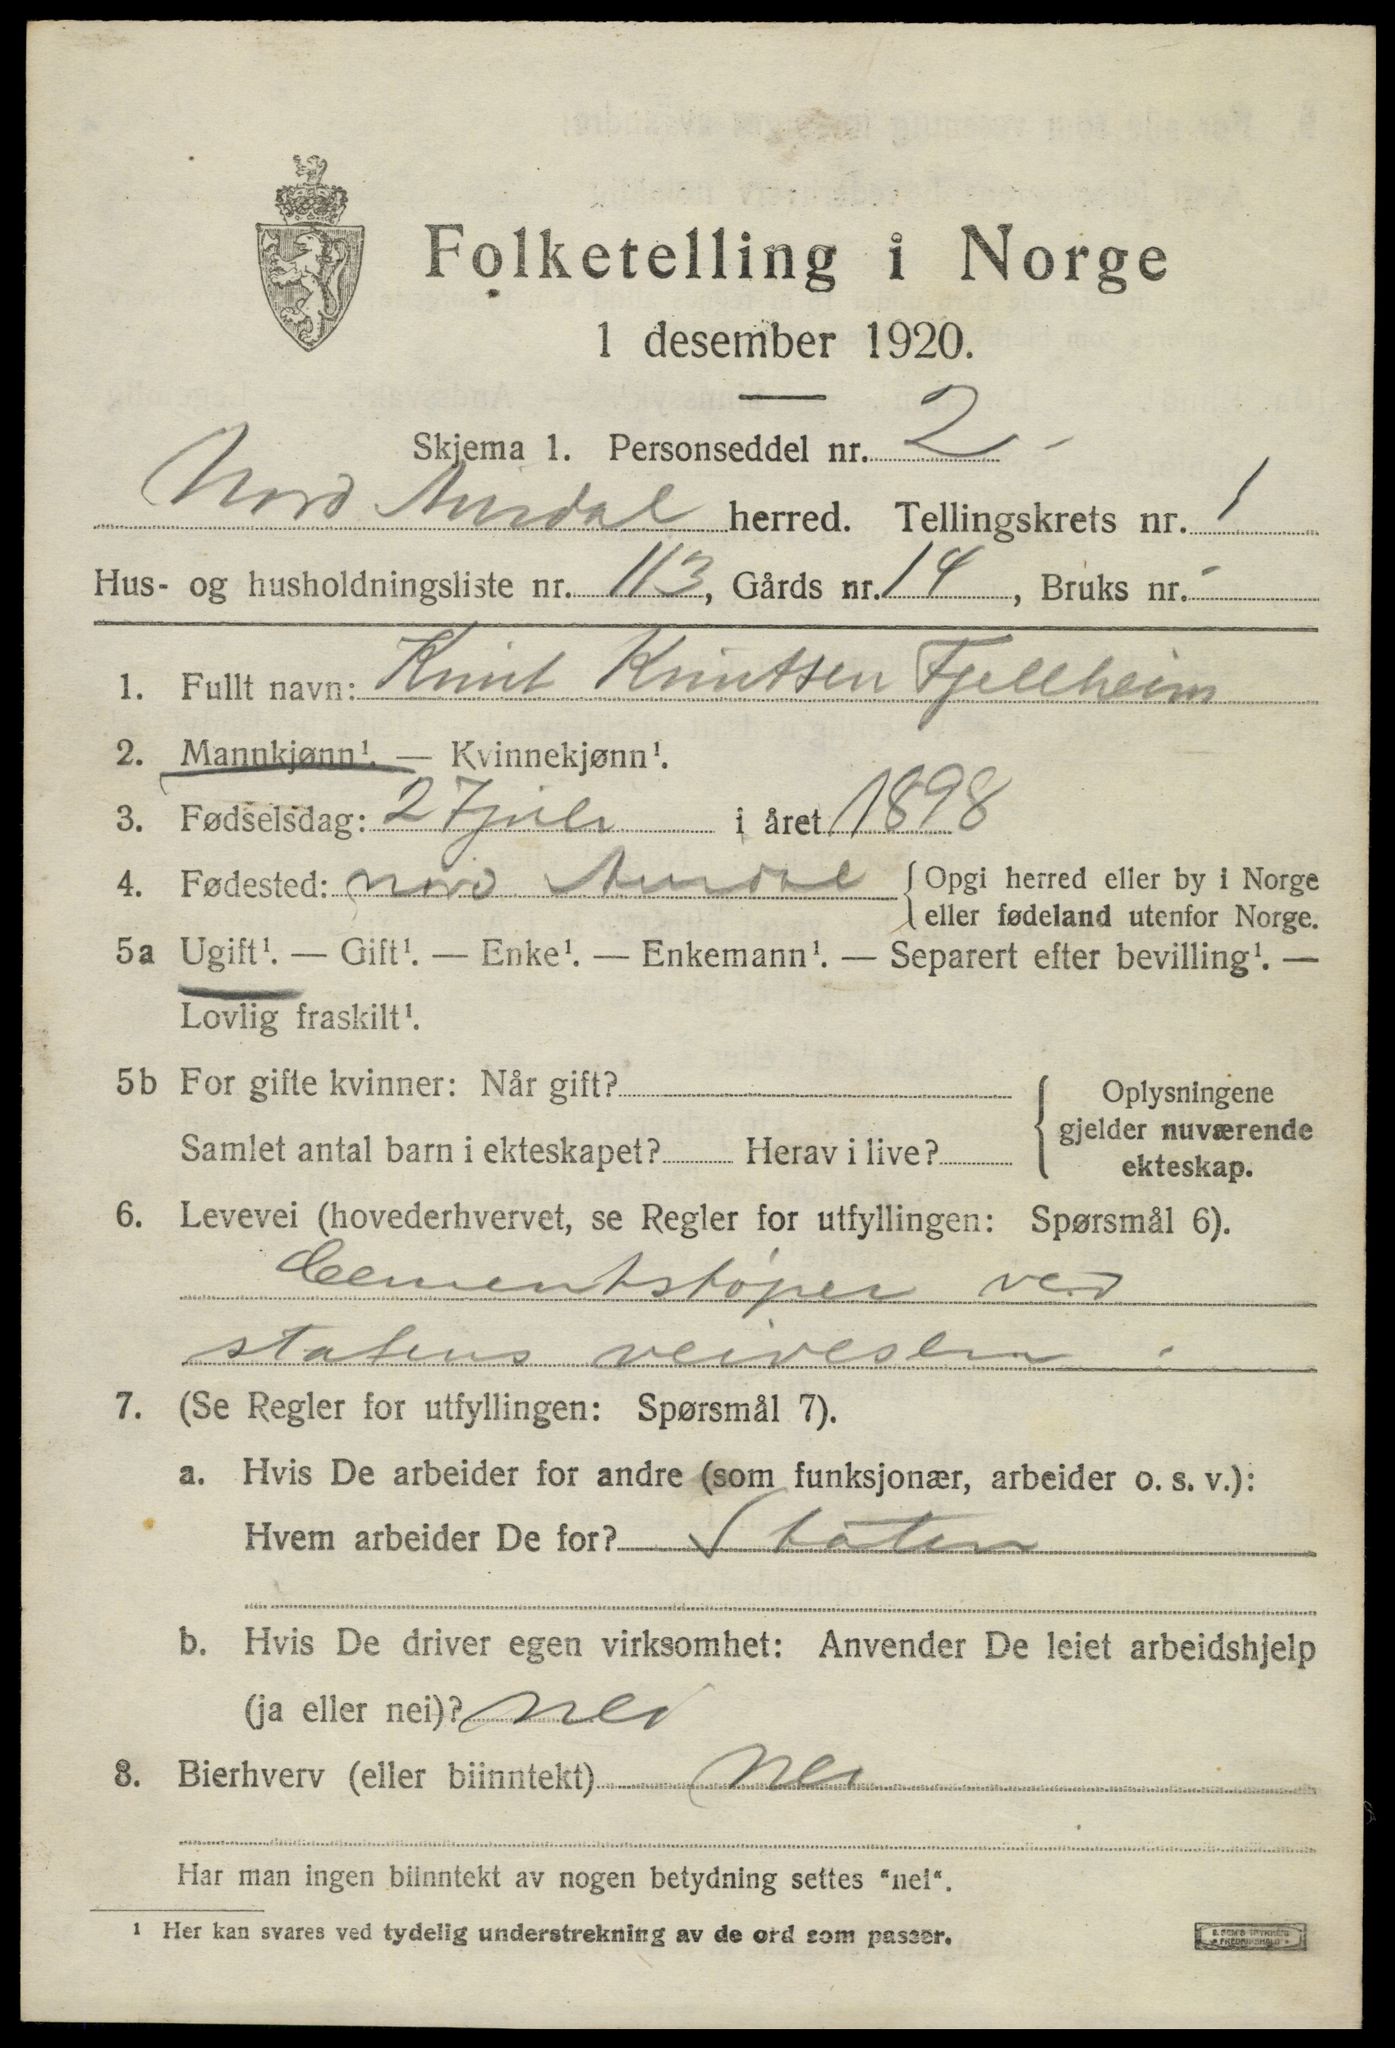 Folketelling i Norge
1 desember 1920.
Skjema 1. Personseddel nr. 2
Nord Aurdal herred. Tellingskrets nr. 1
Hus- og husholdningsliste nr. 113, Gårds nr. 14, Bruks nr. -
1. Fullt navn: Knut Knutsen Fjellheim
2. Mannkjønn¹. — Kvinnekjønn¹.
3. Fødselsdag: 27 juli i året 1898
4. Fødested: Nord Aurdal { Opgi herred eller by i Norge
eller fødeland utenfor Norge.
5a Ugift¹. — Gift¹. — Enke¹. — Enkemann¹. — Separert efter bevilling¹. —
Lovlig fraskilt¹.
5b For gifte kvinner: Når gift? { Oplysningene
gjelder nuværende
Samlet antal barn i ekteskapet? Herav i live?
ekteskap.
6. Levevei (hovederhvervet, se Regler for utfyllingen: Spørsmål 6).
Cementstøper ved
statens veivesen
7. (Se Regler for utfyllingen: Spørsmål 7).
a. Hvis De arbeider for andre (som funksjonær, arbeider o. s. v.):
Hvem arbeider De for? Staten
b. Hvis De driver egen virksomhet: Anvender De leiet arbeidshjelp
(ja eller nei)? nei
8. Bierhverv (eller biinntekt) Nei
Har man ingen biinntekt av nogen betydning settes "nei".
¹ Her kan svares ved tydelig understrekning av de ord som passer.